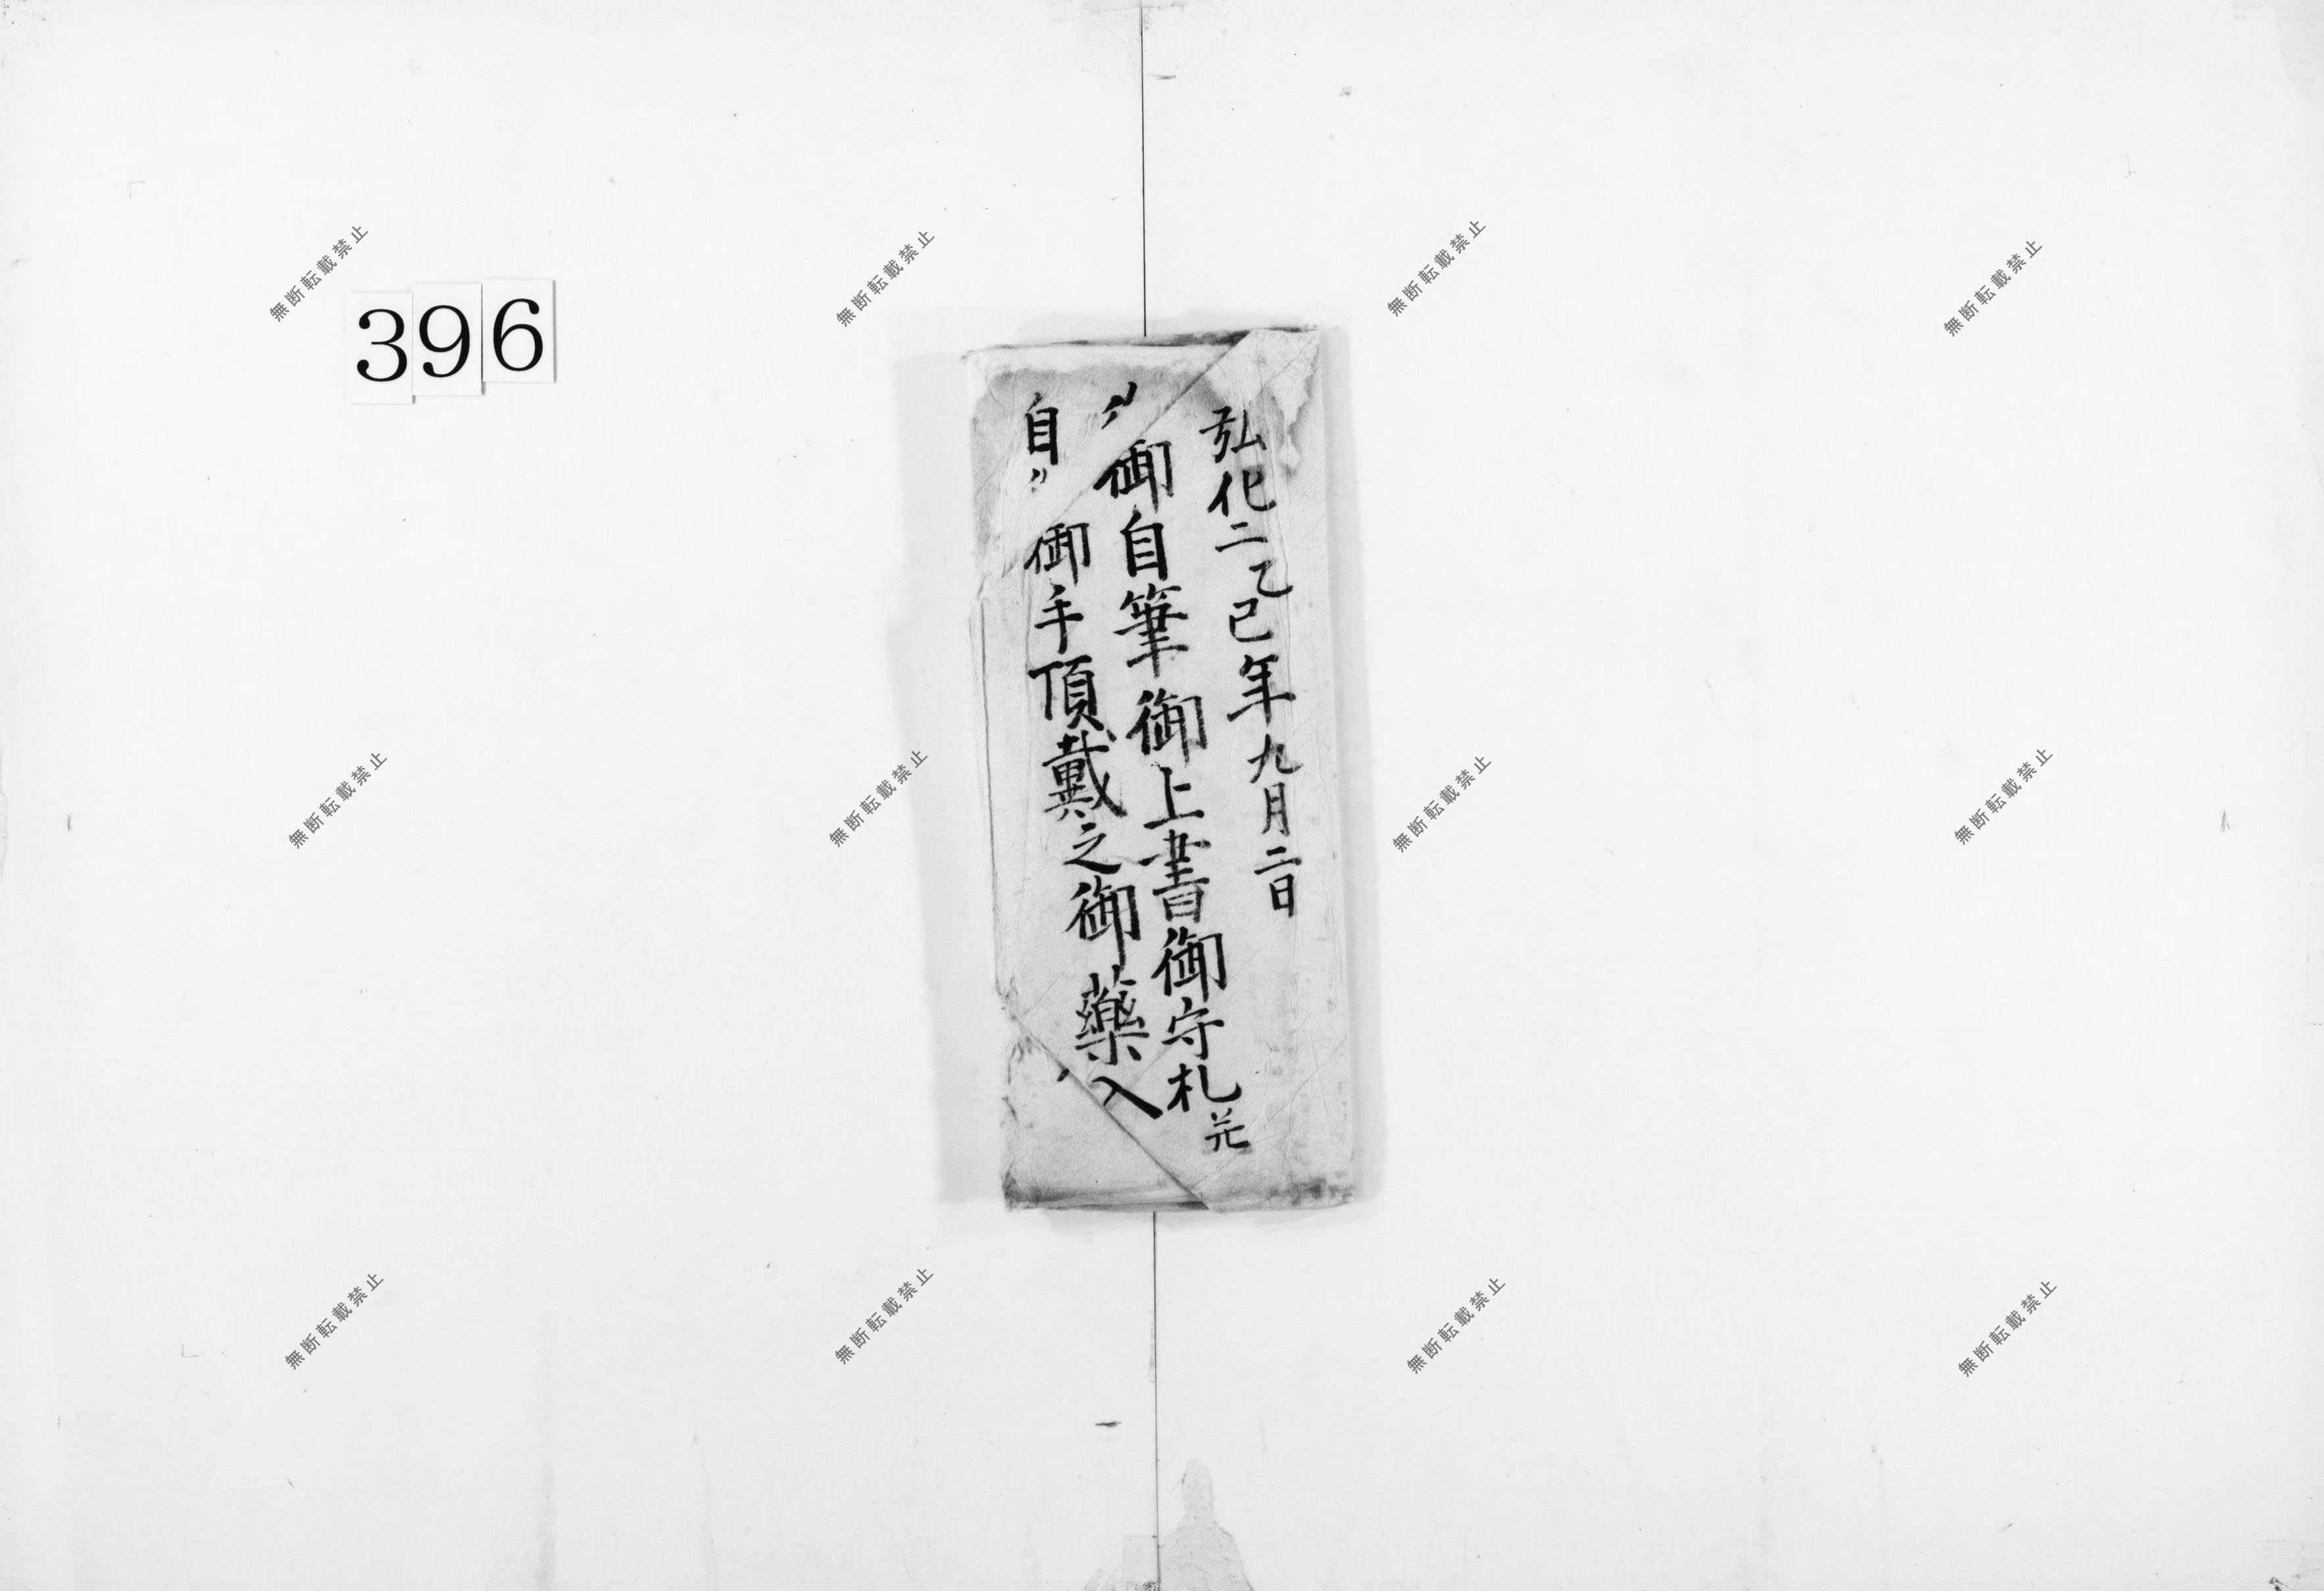 弘化二乙巳年九月二日
〃御自筆御上書御守札
自〃御手頂戴之御藥入
396
無断転載禁止
無断転載禁止
無断転載禁止
無断転載禁止
無断転載禁止
無断転載禁止
無断転載禁止
無断転載禁止
無断転載禁止
無断転載禁止
無断転載禁止
無断転載禁止